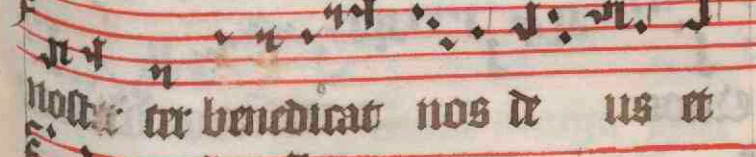 noster ter benedicat nos de us et